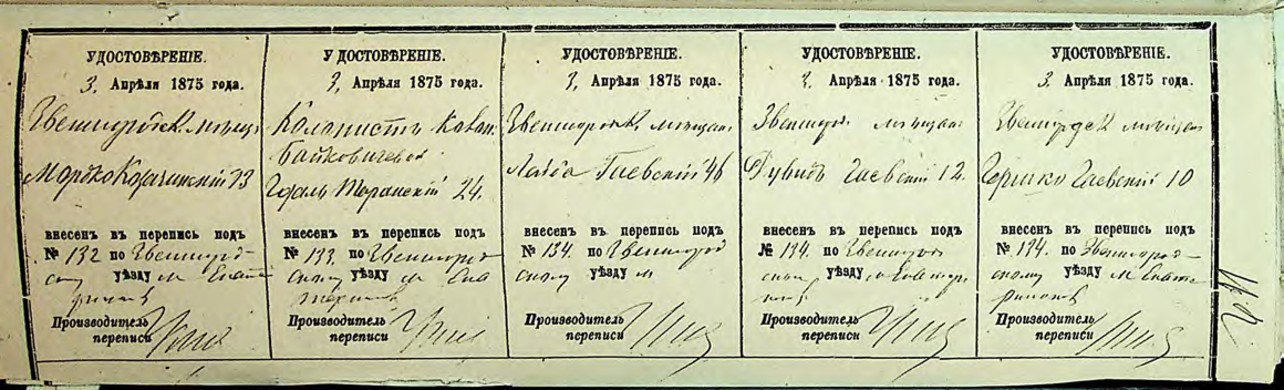 УДОСТОВѢРЕНІЕ.
3, Апрѣля 1875 года.
Звенигородск. мѣщ.
Мордко Козачинскій 23
внесенъ въ перепись подъ
№ 132 по Звенигород-
скому уѣзду м Екате
Производитель
переписи
УДОСТОВѢРЕНІЕ.
3, Апрѣля 1875 года.
Колонистъ Каван.
Гдаль Таранскій 24.
внесенъ въ перепись подъ
№ 133. по Звенигород
скому уѣзду м Ека
Производитель
переписи
УДОСТОВѢРЕНІЕ.
3, Апрѣля 1875 года.
Звенигородск. мѣщан.
Лейба Гаевскій 46
внесенъ въ перепись подъ
№ 134. по Звенигород
скому уѣзду м
Производитель
переписи
УДОСТОВѢРЕНІЕ.
3, Апрѣля 1875 года.
Звенигор. мѣщан.
Дувидъ Гаевскій 12.
внесенъ въ перепись подъ
№ 134. по Звенигород
уѣзду
Производитель
переписи
УДОСТОВѢРЕНІЕ.
3. Апрѣля 1875 года.
Звенигородск мѣщан
Гершко Гаевскій 10
внесенъ въ перепись подъ
№ 134. по Звенигород-
скому уѣзду м Екате
Производитель
переписи